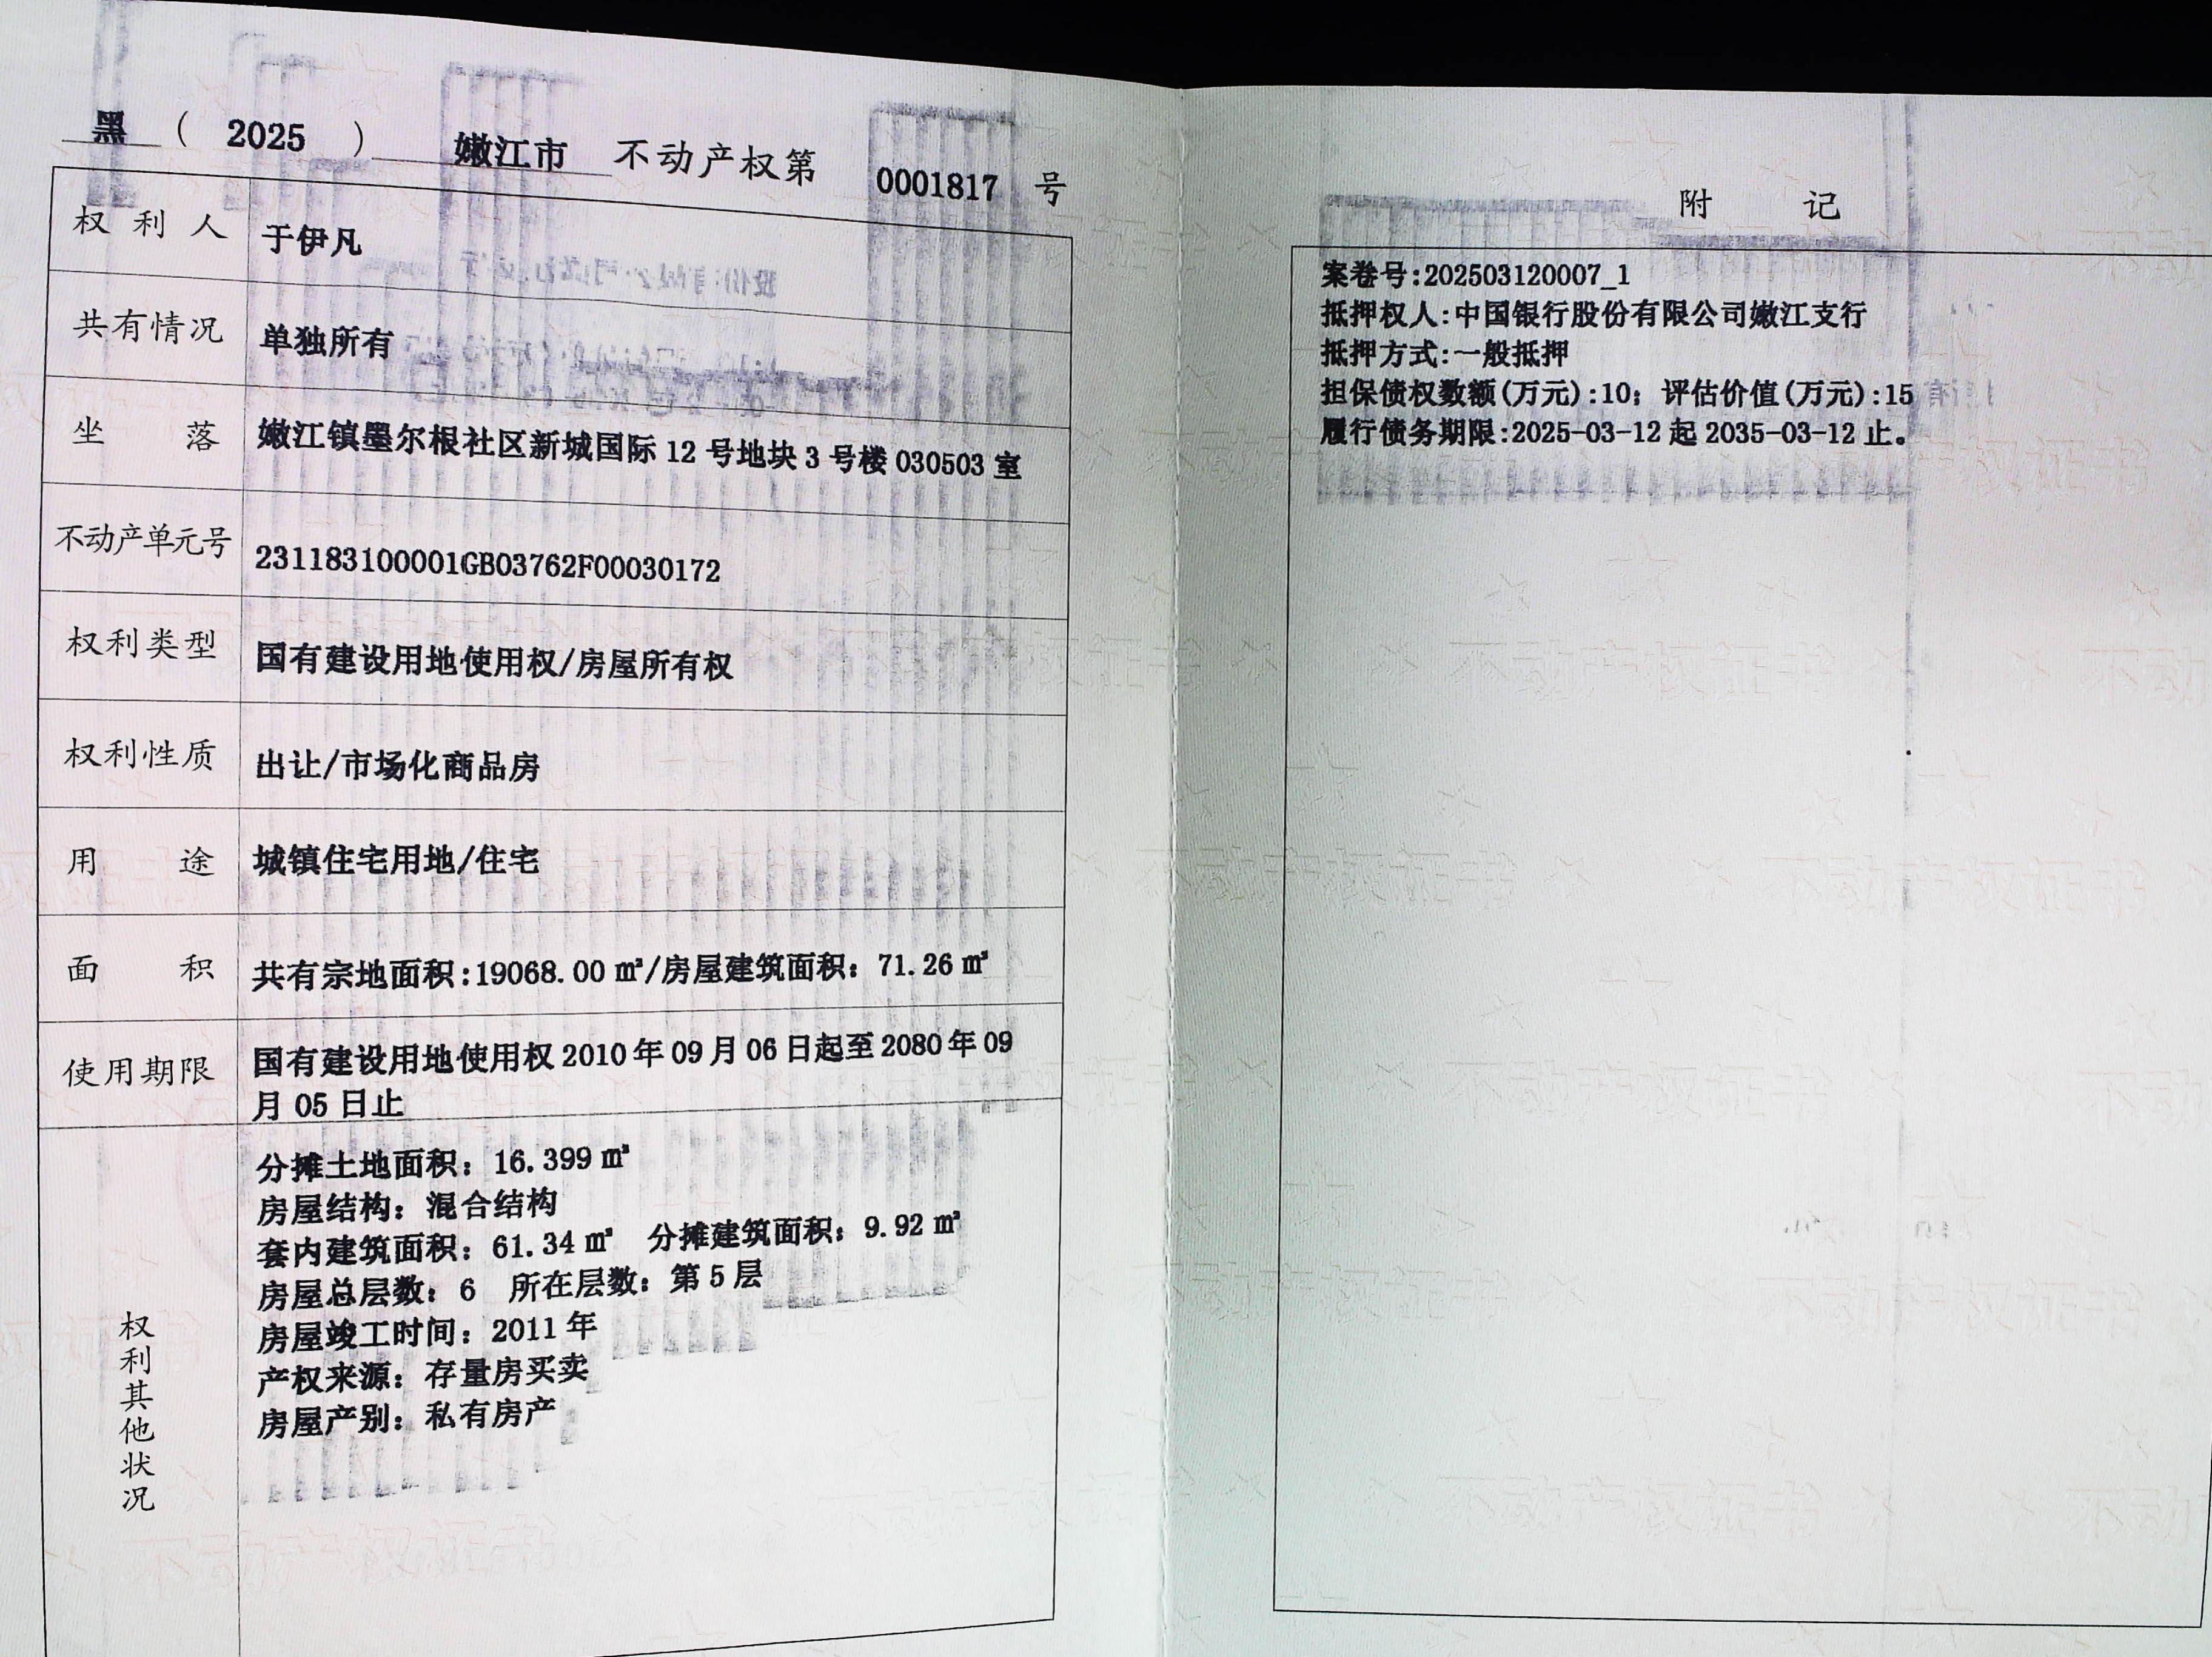 黑 ( 2025 ) 嫩江市 不动产权第 0001817 号
权利人 于伊凡
共有情况 单独所有
坐落 嫩江镇墨尔根社区新城国际 12 号地块 3 号楼 030503 室
不动产单元号 231183100001GB03762F00030172
权利类型 国有建设用地使用权/房屋所有权
权利性质 出让/市场化商品房
用途 城镇住宅用地/住宅
面积 共有宗地面积:19068.00 ㎡/房屋建筑面积: 71.26 ㎡
使用期限 国有建设用地使用权 2010 年 09 月 06 日起至 2080 年 09
月 05 日止
权利其他状况
分摊土地面积: 16.399 ㎡
房屋结构: 混合结构
套内建筑面积: 61.34 ㎡ 分摊建筑面积: 9.92 ㎡
房屋总层数: 6 所在层数: 第 5 层
房屋竣工时间: 2011 年
产权来源: 存量房买卖
房屋产别: 私有房产
附记
案卷号:202503120007_1
抵押权人:中国银行股份有限公司嫩江支行
抵押方式:一般抵押
担保债权数额(万元):10; 评估价值(万元):15
履行债务期限:2025-03-12 起 2035-03-12 止。